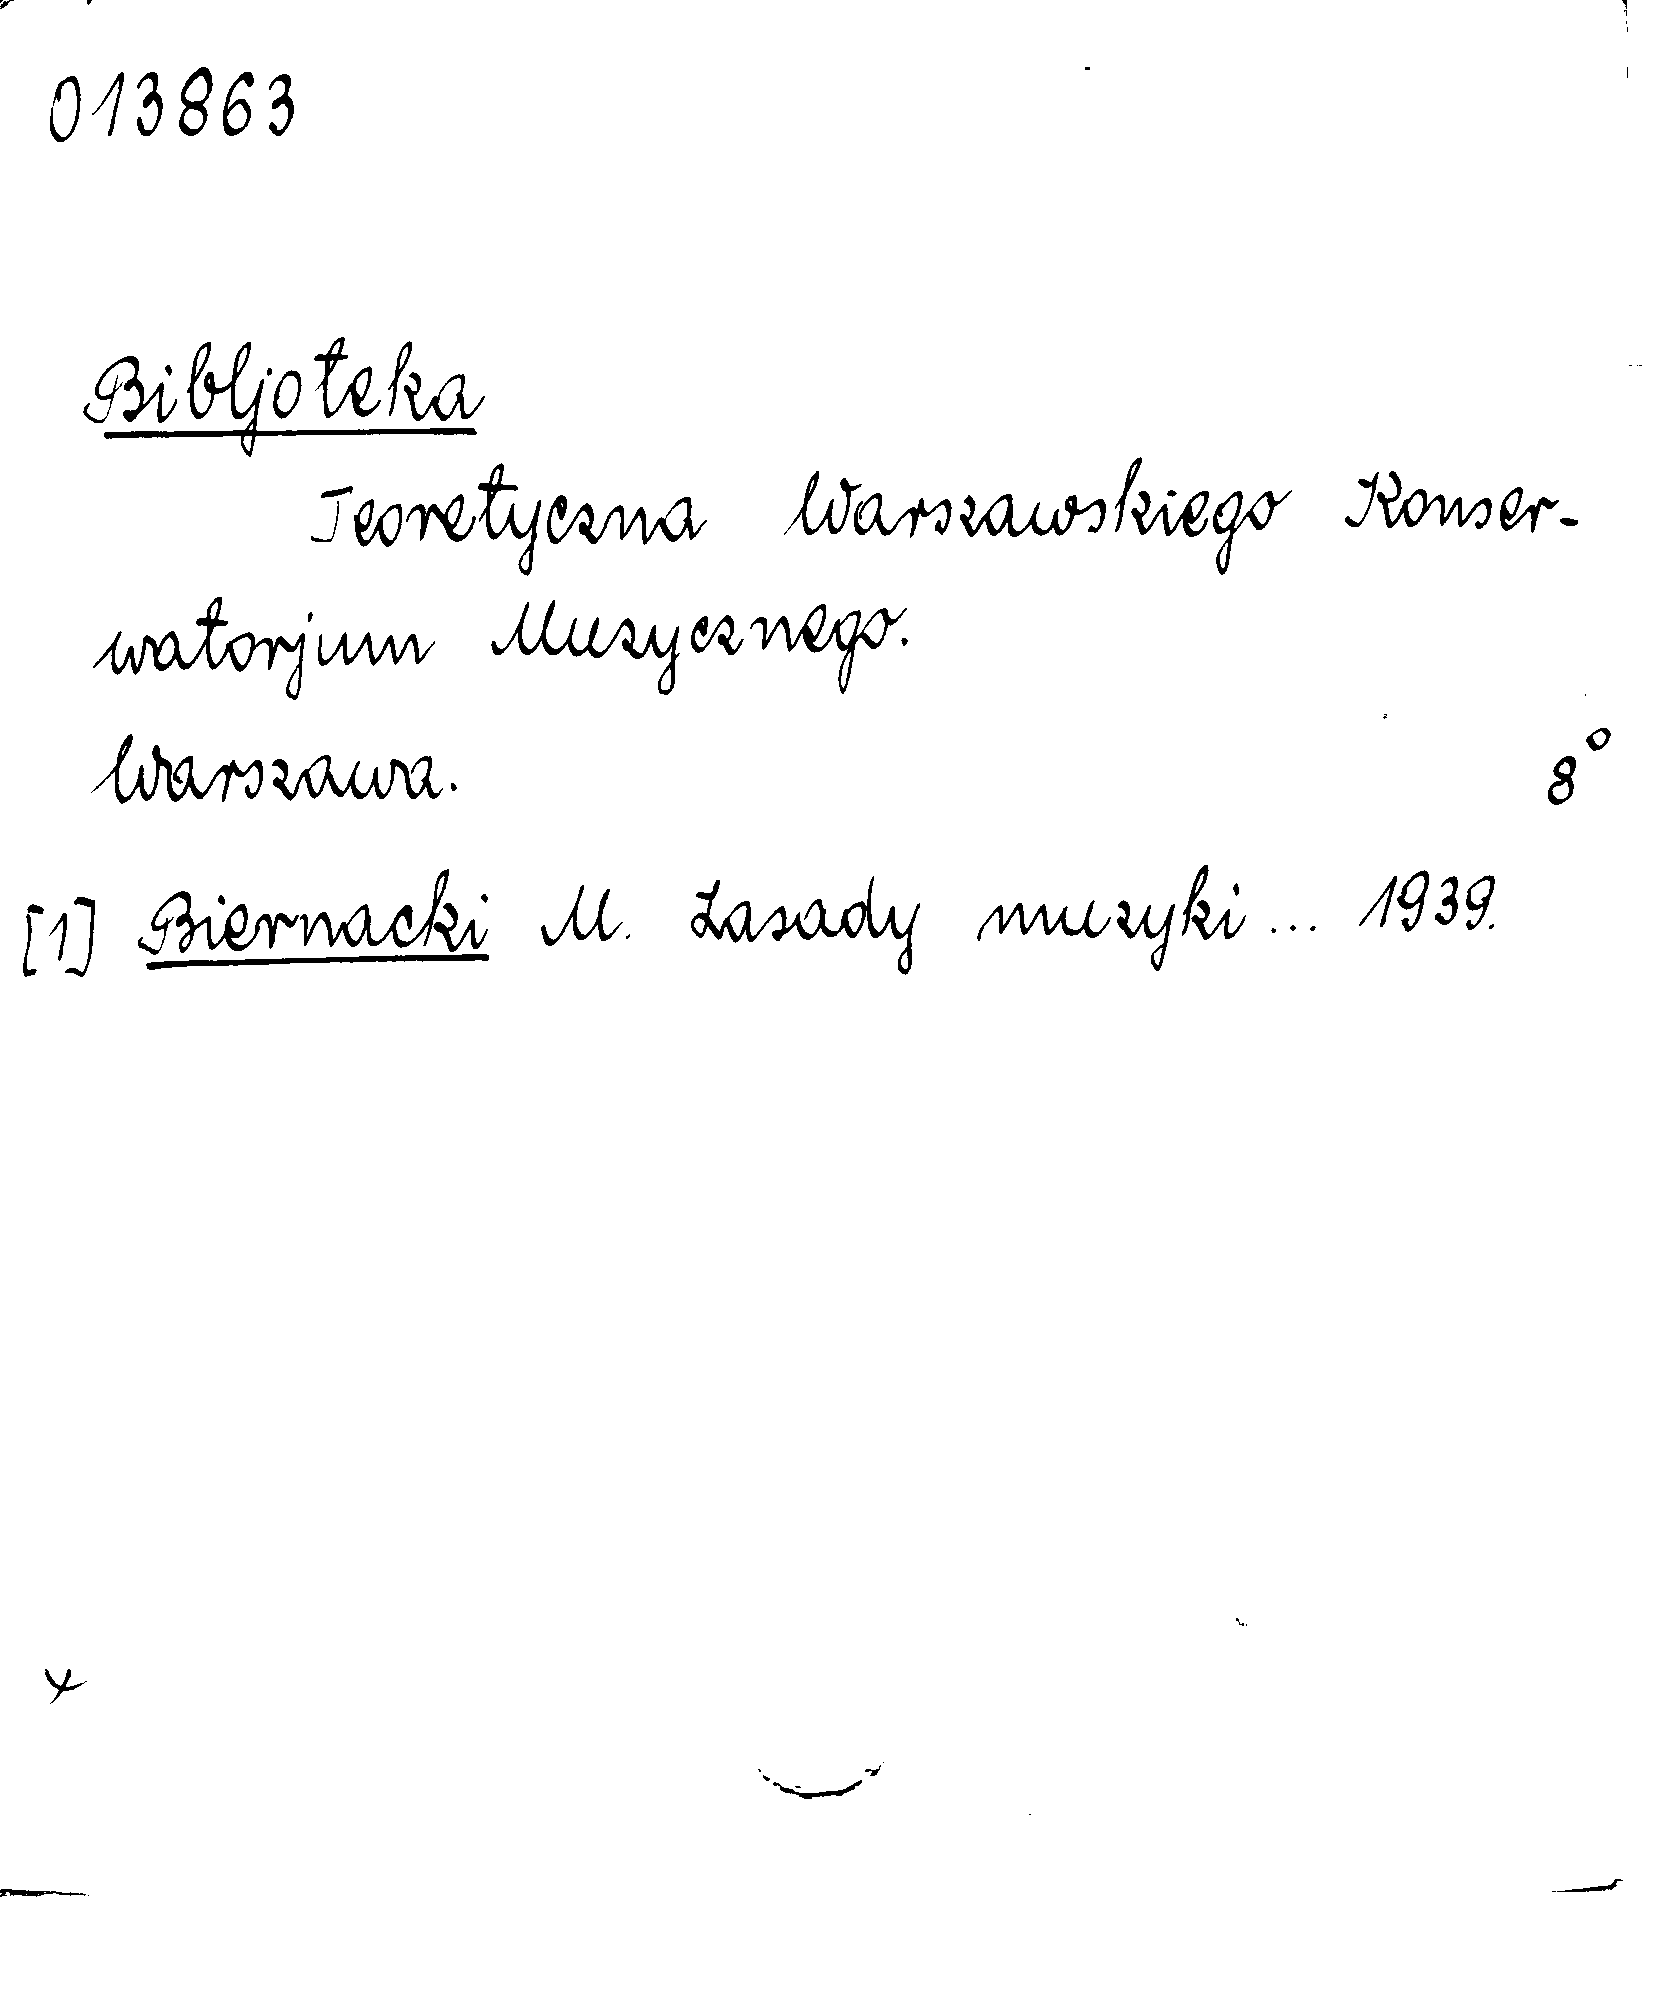 013863
Bibljoteka
Teoretyczna Warszawskiego Konser-
watorjum Muzycznego.
Warszawa. 8°
[1] Biernacki M. Zasady muzyki... 1939.
x